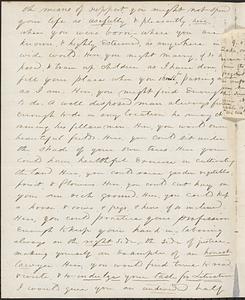 the means of support you might not spend
your life as usefully & pleasantly here
where you were born, where you are
known & highly esteemed, as any where
wide world. Here you might marry, if
posed, & train up children as I have done
fill your place when you
as I am. Here you might find enough
to do. A well disposed man always finds
enough to do in any location he may
among his fellow men. Here you would own
beautiful fields. Here you could sit under
the shade of your own trees. Here you
could have healthful exercise in cultivating
the land. Here you could raise garden vegetables
fruit, & flowers. Here you could cut hay on
your own orch ground. Here you could keep
a horse & some pigs & hens if so inclined
Here, you could practice your profession
enough to keep your hand in, laboring
always on the right side, the side of justice
making yourself an example of an honest
lawyer. Here, you would find time to read
& write & to indulge your taste for
I would give you an undivided half